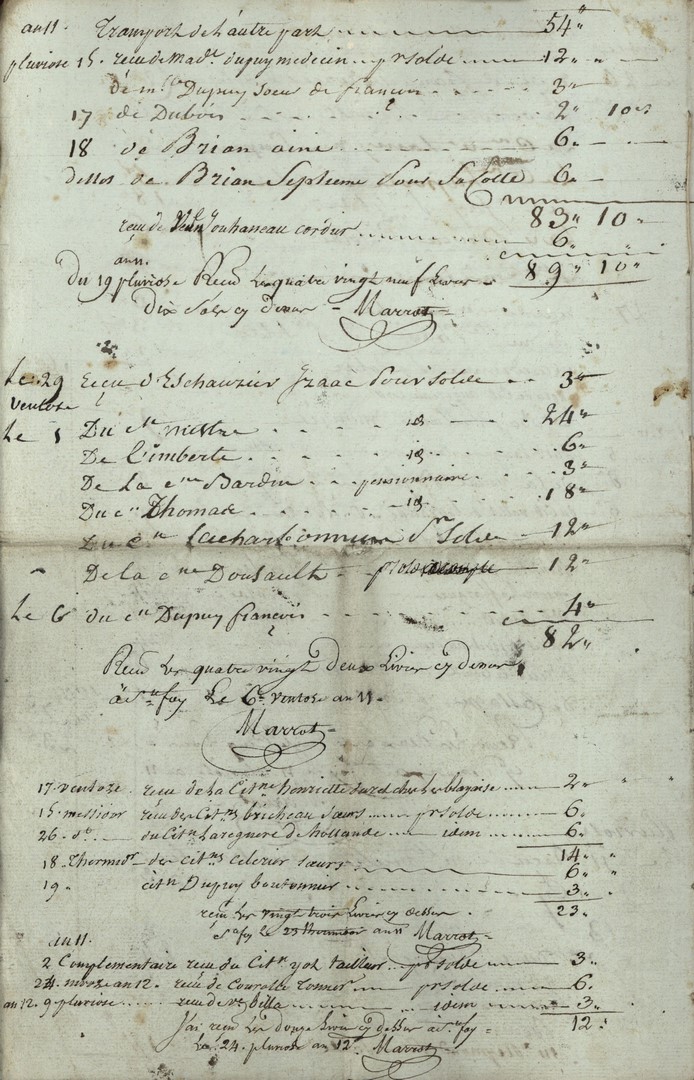 an 11. Transport de l'autre part 54"
pluviose 15. recu de Mad.e dupuy medecin pr solde 12"
de m.lle Dupuy soeur de francois 3"
17 de Dubois 2" 10s
18 de Brian ainé 6"
de Brian Septheme Pour Sa Cotte 6"
83" 10"
recu de Jouhanneau cordier 6"
89" 10"
an 11.
Du 19 pluviose Recu les quatre vingt neuf Livres
Dix Sols cy dessus Marrot
Le 29 recu d'Eschauzier Izaac Pour solde 3"
ventose
Le 1 Du cn 24"
De Limberte 6"
De La cne Bardin pensionnaire 3"
Du cn Thomas 18"
Du cn Lacharbonniere Pr Solde 12"
De la cne Dousault pr solde 12"
Le 6 du cn Dupuy francois 4"
82"
Recu les quatre vingt deux Livres cy dessus
à Ste foy Le 6e ventose an 11
Marrot
17 ventoze recu de La Citne henriette 2"
15 messidor recu des Citnes bricheau soeurs pr solde 6"
26 do du Citn Laregnere de hollande idem 6"
14"
18 Thermor des citnes celerier soeurs 6"
19 citn Dupuy boutonnier 3"
23"
recu Les vingt trois Livres cy dessus
Ste foy le 23 an 11 Marrot
an 11.
2 Complementaire recu du Citn tailleur pr solde 3"
24 nivoze an 12. recu de pr solde 6"
an 12. 9 pluviose recu de ve billa idem 3"
12"
J'ai recu Les douze Livres cy dessus à Ste foy
Le 24 pluviose an 12 Marrot